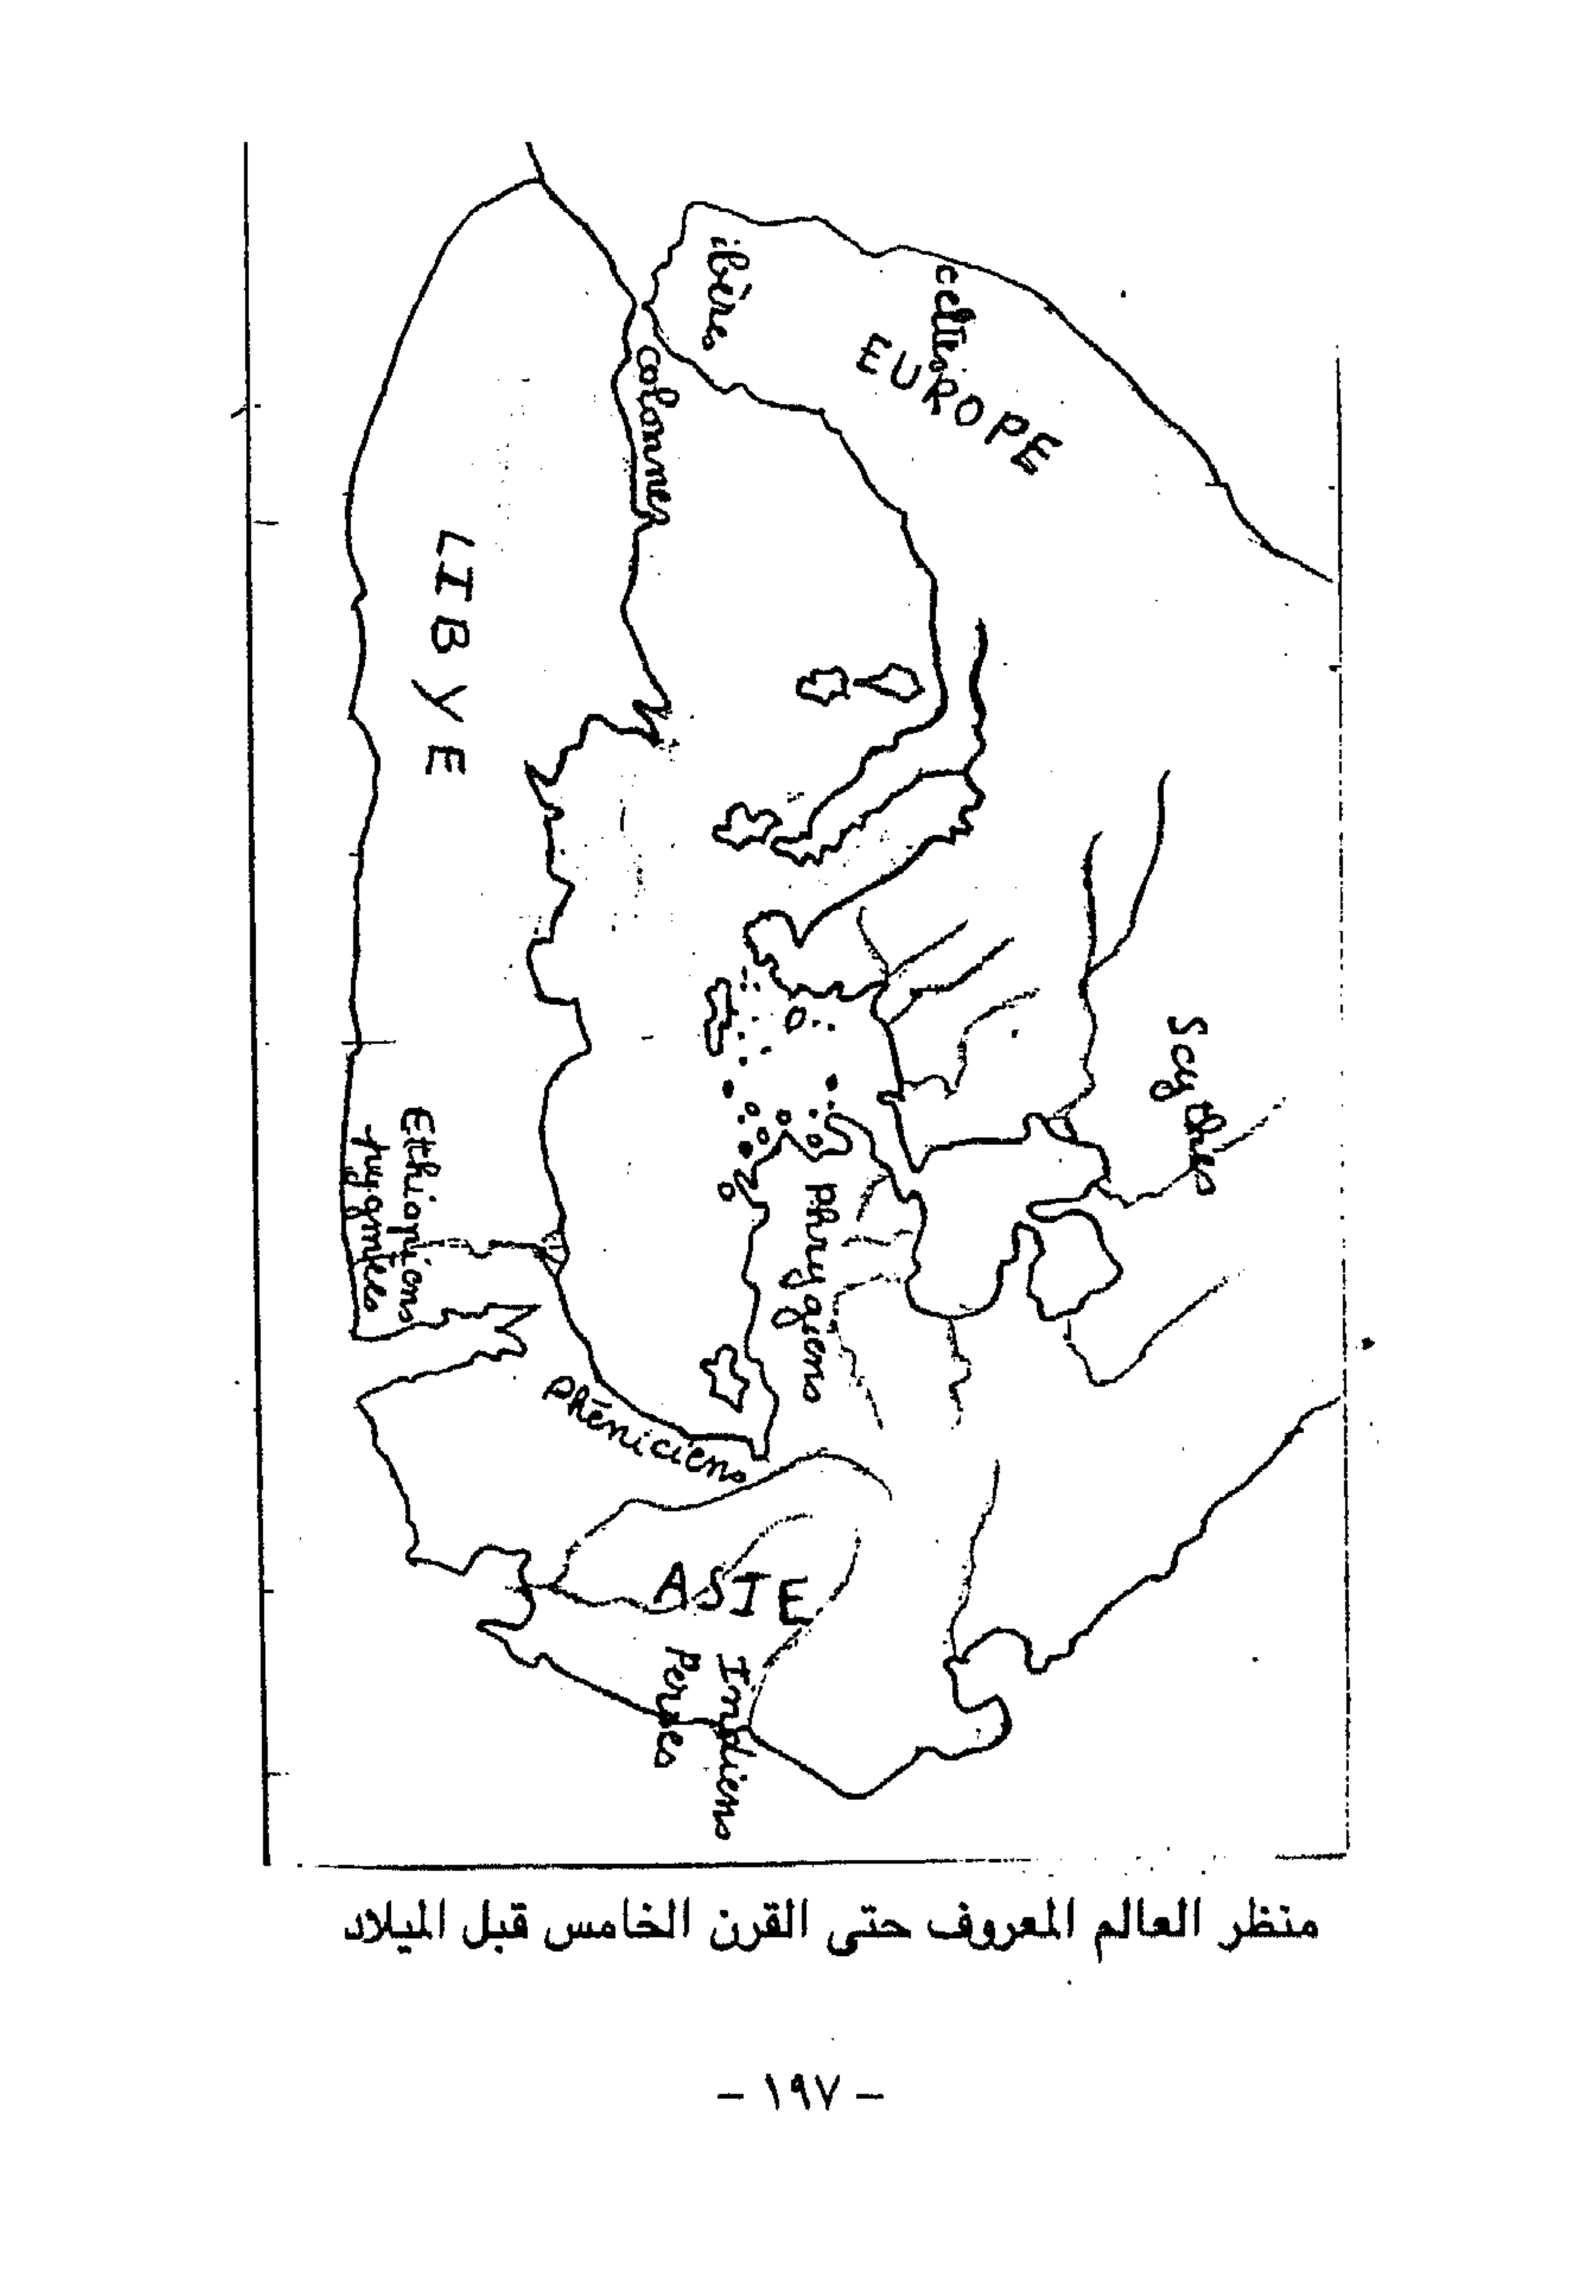 ibères
celtes
EUROPE
colonnes
LIBYE
Scythes
Ethiopiens
pygmées
phrygiens
phéniciens
ASIE
Indiens
Perses
منظر العالم المعروف حتى القرن الخامس قبل الميلاد
- ١٩٧ -